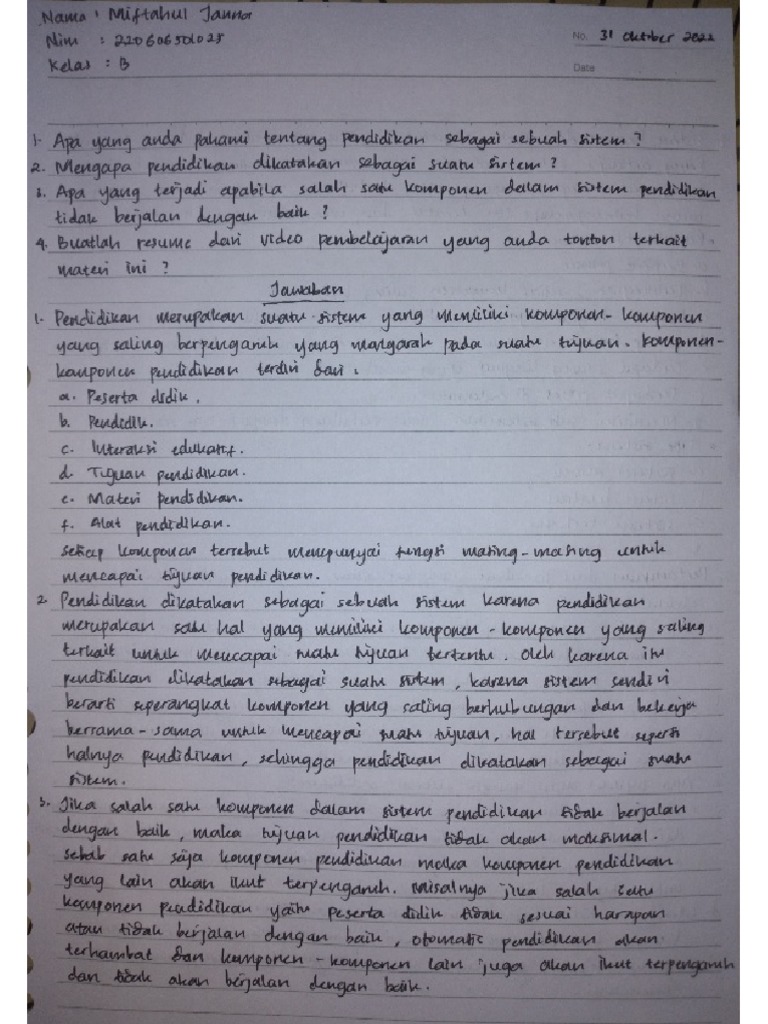 Nama : Miftahul Jannar
Nim : 220606501025
No. 31 Oktober 2022
Kelas : B
Date
1. Apa yang anda pahami tentang pendidikan sebagai sebuah sistem ?
2. Mengapa pendidikan dikatakan sebagai suatu sistem ?
3. Apa yang terjadi apabila salah satu komponen dalam sistem pendidikan
tidak berjalan dengan baik ?
4. Buatlah resume dari video pembelajaran yang anda tonton terkait
materi ini ?
Jawaban
1. Pendidikan merupakan suatu sistem yang memiliki komponen-komponen
yang saling berpengaruh yang mengarah pada suatu tujuan. Komponen-
komponen pendidikan terdiri dari :
a. Peserta didik.
b. Pendidik.
c. Interaksi edukatif.
d. Tujuan pendidikan.
e. Materi pendidikan.
f. Alat pendidikan.
setiap komponen tersebut mempunyai fungsi masing-masing untuk
mencapai tujuan pendidikan.
2. Pendidikan dikatakan sebagai sebuah sistem karena pendidikan
merupakan satu hal yang memiliki komponen-komponen yang saling
terkait untuk mencapai suatu tujuan tertentu. Oleh karena itu
pendidikan dikatakan sebagai suatu sistem, karena sistem sendiri
berarti seperangkat komponen yang saling berhubungan dan bekerja
bersama-sama untuk mencapai suatu tujuan, hal tersebut seperti
halnya pendidikan, sehingga pendidikan dikatakan sebagai suatu
sistem.
3. Jika salah satu komponen dalam sistem pendidikan tidak berjalan
dengan baik, maka tujuan pendidikan tidak akan maksimal.
sebab satu saja komponen pendidikan maka komponen pendidikan
yang lain akan ikut terpengaruh. Misalnya jika salah satu
komponen pendidikan yaitu peserta didik tidak sesuai harapan
atau tidak berjalan dengan baik, otomatic pendidikan akan
terhambat dan komponen-komponen lain juga akan ikut terpengaruh
dan tidak akan berjalan dengan baik.